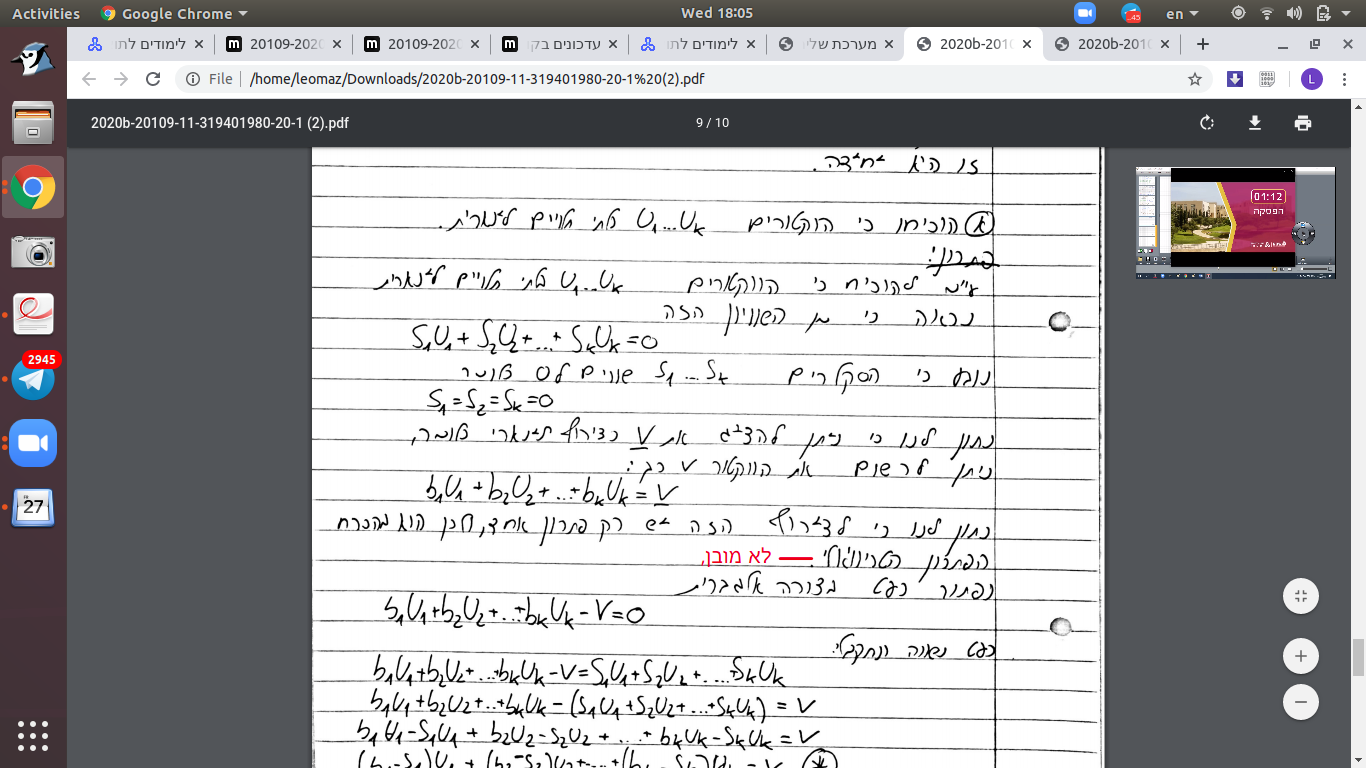 Activities
Google Chrome
Wed 18:05
en
לימודים לתו
20109-202
20109-2020
עדכונים בקו
לימודים לתו
מערכת שלי
2020b-2010
2020b-2010
File
/home/leomaz/Downloads/2020b-20109-11-319401980-20-1%20(2).pdf
L
2020b-20109-11-319401980-20-1 (2).pdf
9 / 10
זו היא יחידה.
א הוכיחו כי הוקטורים U₁...Uₖ בלתי תלויים לינארית.
פתרון:
ע"מ להוכיח כי הווקטורים U₁...Uₖ בלתי תלויים לינארית
נראה כי מן השוויון הזה
S₁U₁ + S₂U₂ + ... + SₖUₖ = 0
נובע כי הסקלרים S₁...Sₖ שווים ל0 כלומר
S₁ = S₂ = Sₖ = 0
נתון לנו כי ניתן להציג את V כצירוף לינארי כלומר,
ניתן לרשום את הווקטור V כך:
b₁U₁ + b₂U₂ + ... + bₖUₖ = V
נתון לנו כי לצירוף הזה יש רק פתרון אחד, ולכן הוא בהכרח
הפתרון הטריוויאלי. לא מובן,
נפתור כעת בצורה אלגברית
b₁U₁ + b₂U₂ + ... + bₖUₖ - V = 0
כעת נשווה ונקבל:
b₁U₁ + b₂U₂ + ... + bₖUₖ - V = S₁U₁ + S₂U₂ + ... SₖUₖ
b₁U₁ + b₂U₂ + ... + bₖUₖ - (S₁U₁ + S₂U₂ + ... + SₖUₖ) = V
b₁U₁ - S₁U₁ + b₂U₂ - S₂U₂ + ... + bₖUₖ - SₖUₖ = V
(b₁-S₁)U₁ + (b₂-S₂)U₂ + ... + (bₖ-Sₖ)Uₖ = V *
01:12
הפסקה
2945
27
.45